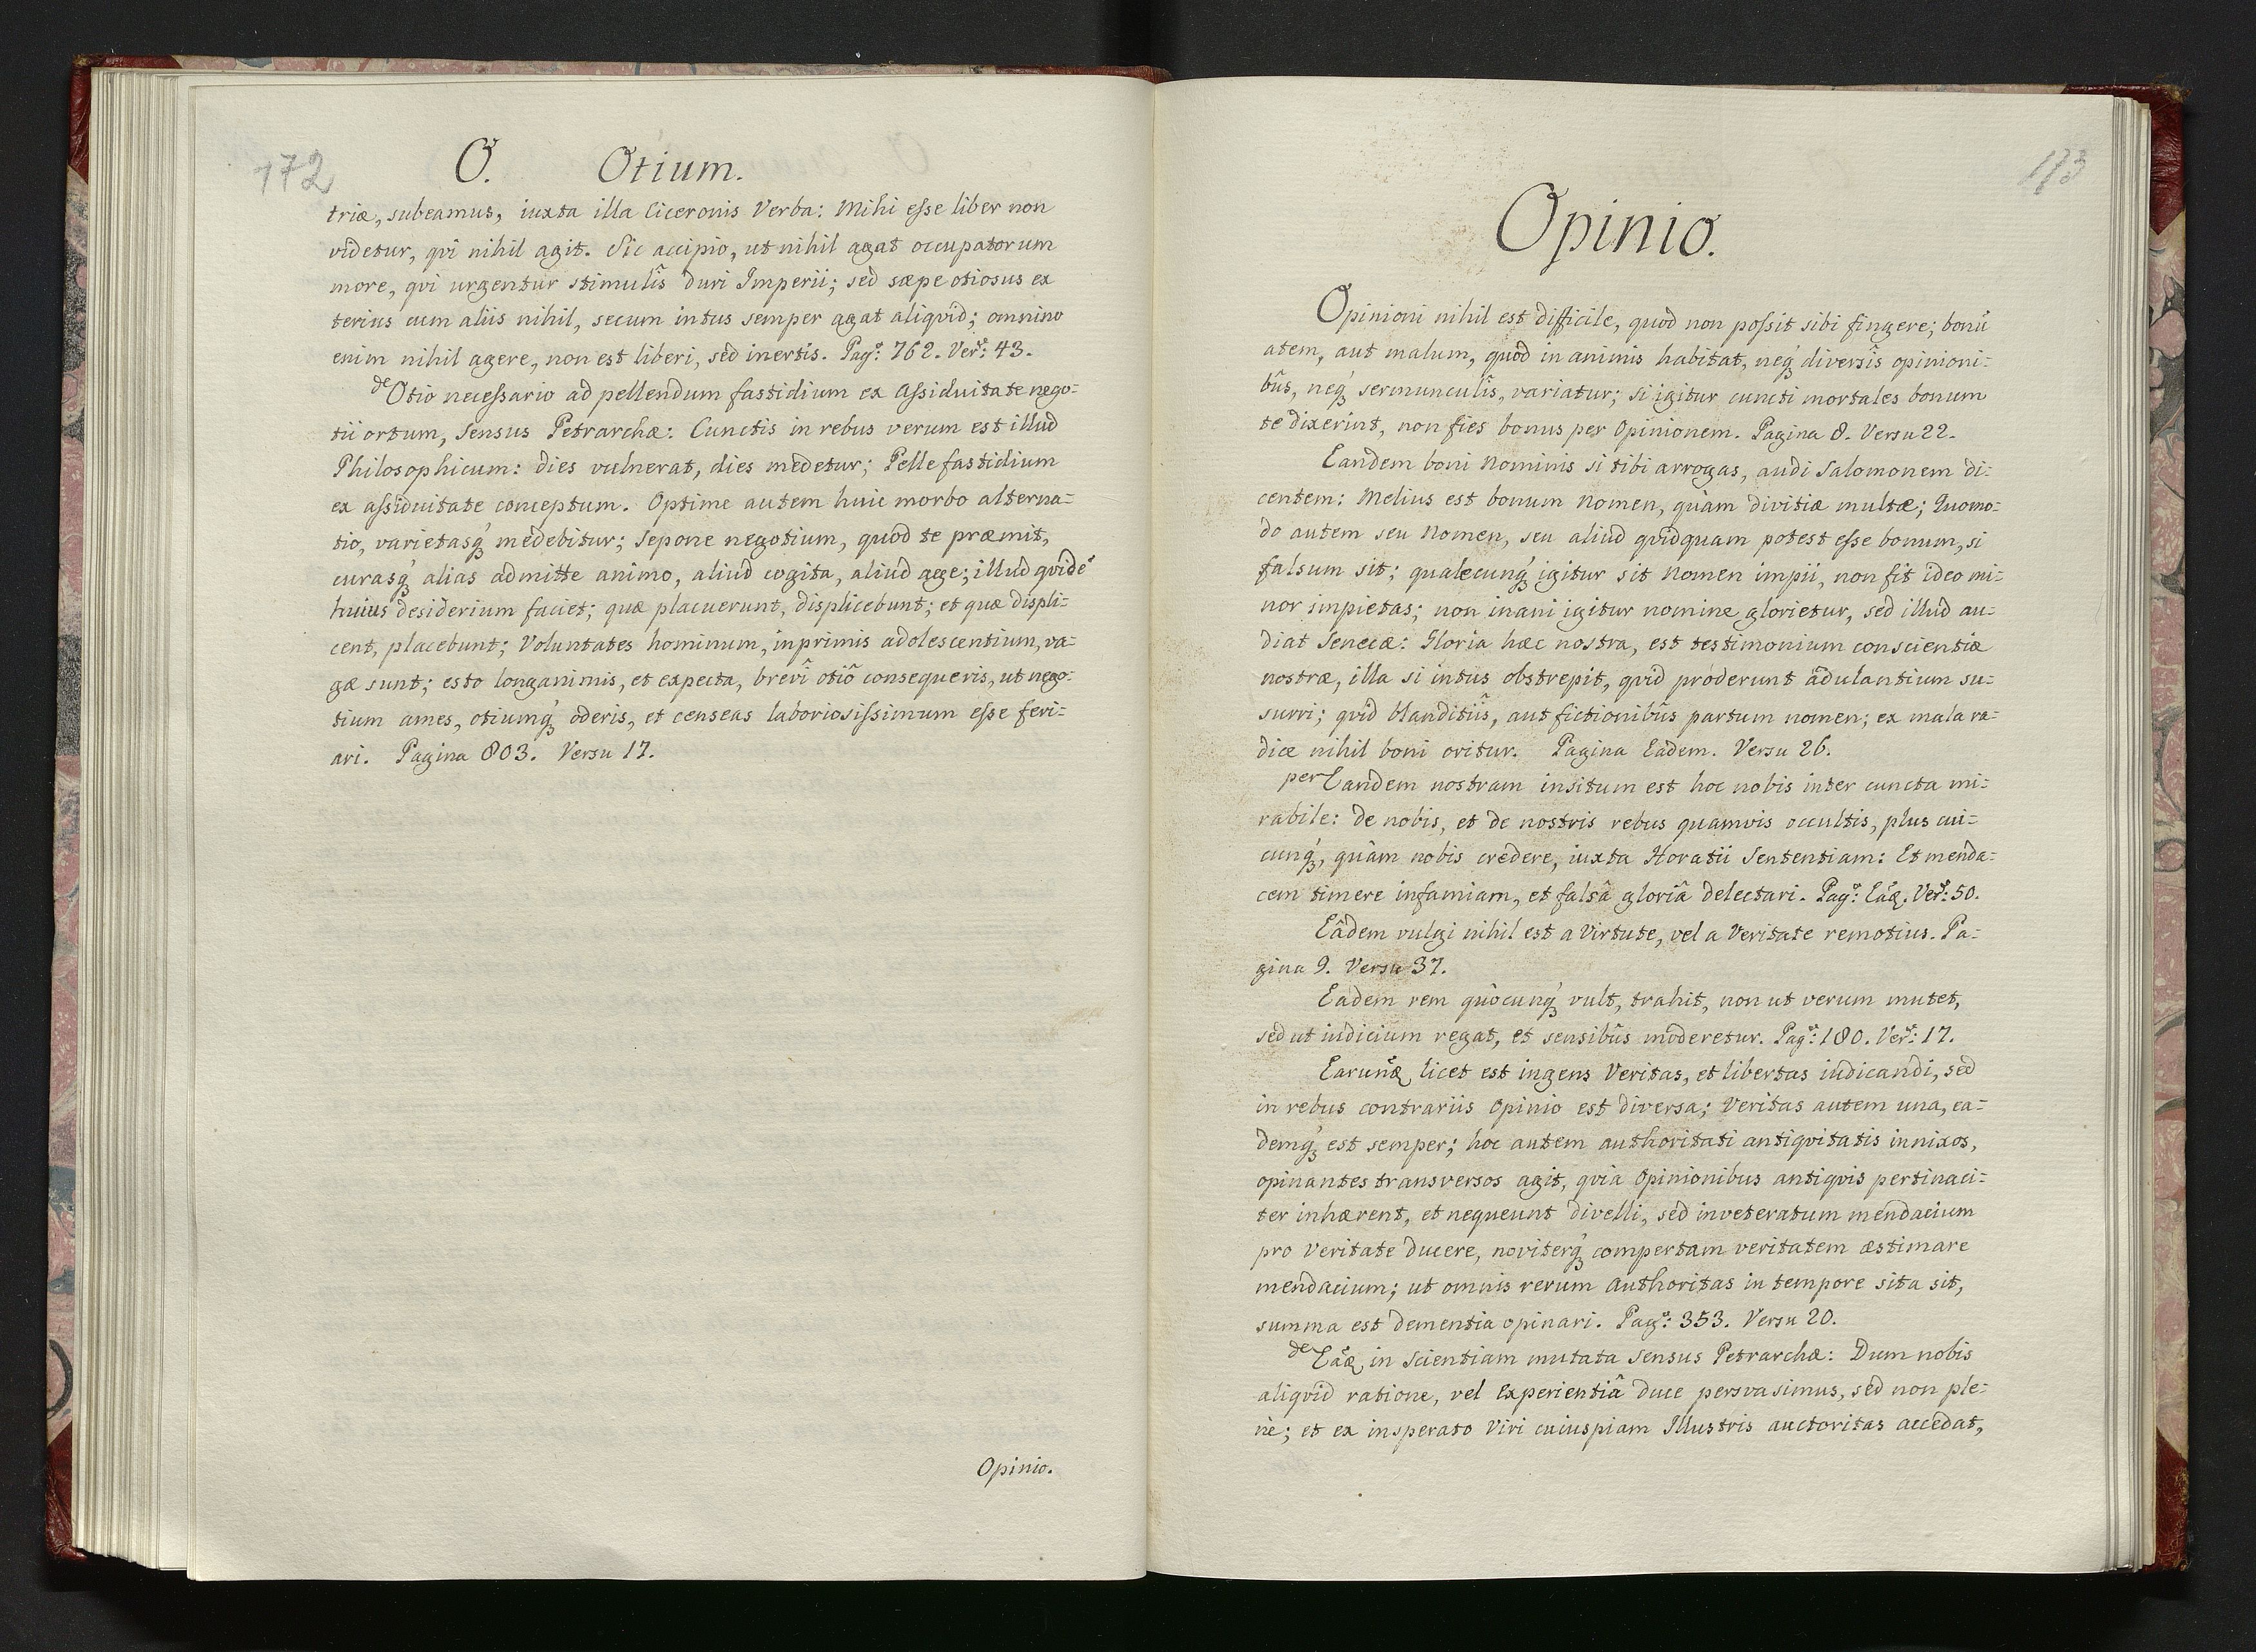 172
O. Otium.
triæ, subeamus, iuxta illa Ciceronis Verba: Mihi esse liber non
videtur, qvi nihil agit. Sic accipio, ut nihil agat occupatorum
more, qvi urgentur stimulîs duri Imperii; sed sæpe otiosus ex
terius cum aliis nihil, secum intus semper agat aliqvid; omnino
enim nihil agere, non est liberi, sed inertis. Pag: 762. Ver: 43.
de Otio necessario ad pellendum fastidium ex Assiduitate nego=
tii ortum, Sensus Petrarchæ: Cunctis in rebus verum est illud
Philosophicum: dies vulnerat, dies medetur; Pelle fastidium
ex assiduitate conceptum. Optime autem huic morbo alterna=
tio, varietasq́ꝫ medebitur; Sepone negotium, quod te præmit,
curasq́ꝫ alias admitte animo, aliud cogita, aliud age; illud qvidē
huius desiderium faciet; quæ placuerunt, displicebunt; et quæ displi=
cent, placebunt; Voluntates hominum, inprimis adolescentium, va=
gæ sunt; esto longanimis, et expecta, brevî otiô consequeris, ut nego=
tium ames, otiumq́ꝫ oderis, et censeas laboriosissimum esse feri=
ari. Pagina 803. Versu 17.
Opinio.
173
Opinio.
Opinioni nihil est difficile, quod non possit sibi fingere; bonū
atem, aut malum, quod in animis habitat, neq́ꝫ diversîs opinioni=
bûs, neq́ꝫ sermunculîs, variatur; si igitur cuncti mortales bonum
te dixerint, non fies bonus per Opinionem. Pagina 8. Versu 22.
Eandem boni Nominis si tibi arrogas, audi Salomonem di=
centem: Melius est bonum Nomen, quàm divitiæ multæ; Quomo=
do autem seu Nomen, seu aliud qvidquam potest esse bonum, si
falsum sit; qualecunq́ꝫ igitur sit Nomen impii, non fit ideo mi=
nor impietas; non inani igitur nomine glorietur, sed illud au=
diat Senecæ: Gloria hæc nostra, est testimonium conscientiæ
nostræ, illa si intus obstrepit, qvid proderunt adulantium su=
surri; qvid blanditiîs, aut fictionibûs partum nomen; ex mala ra=
dice nihil boni oritur. Pagina Eâdem. Versu 26.
per Eandem nostram insitum est hoc nobis inter cuncta mi=
rabile: de nobis, et de nostris rebus quamvis occultis, plus cui=
cunq́ꝫ, quàm nobis credere, iuxta Horatii Sententiam: Et menda=
cem timere infamiam, et falsâ gloriâ delectari. Pag: Eâđ. Ver: 50.
Eâdem vulgi nihil est a Virtute, vel a Veritate remotius. Pa=
gina 9. Versu 37.
Eadem rem quòcunq́ꝫ vult, trahit, non ut verum mutet,
sed ut iudicium regat, et sensibûs moderetur. Pag: 180. Ver: 17.
Earunđ licet est ingens Veritas, et libertas iudicandi, sed
in rebus contrariis Opinio est diversa; Veritas autem una, ea=
demq́ꝫ est semper; hoc autem authoritati antiqvitatis innixos,
opinantes transversos agit, qvia Opinionibus antiqvis pertinaci=
ter inhærent, et nequeunt divelli, sed inveteratum mendacium
pro Veritate ducere, noviterq́ꝫ compertam veritatem æstimare
mendacium; ut omnis rerum Authoritas in tempore sita sit,
summa est dementia opinari. Pag: 353. Versu 20.
de Eâđ in Scientiam mutata Sensus Petrarchæ: Dum nobis
aliqvid ratione, vel Experientiâ duce persvasimus, sed non ple=
nè; et ex insperato Viri cuiuspiam Illustris auctoritas accedat,